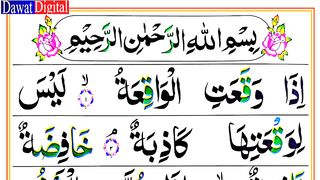 Dawat Digital
بِسْمِ اللهِ الرَّحْمٰنِ الرَّحِيْمِ
اِذَا وَقَعَتِ الْوَاقِعَةُ ۙ﴿۱﴾ لَيْسَ
لِوَقْعَتِهَا كَاذِبَةٌ ۘ﴿۲﴾ خَافِضَةٌ